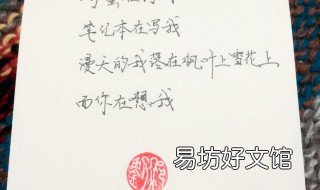 笔记本在写我
漫天的我落在枫叶上雪花上
而你在想我
易坊好文馆